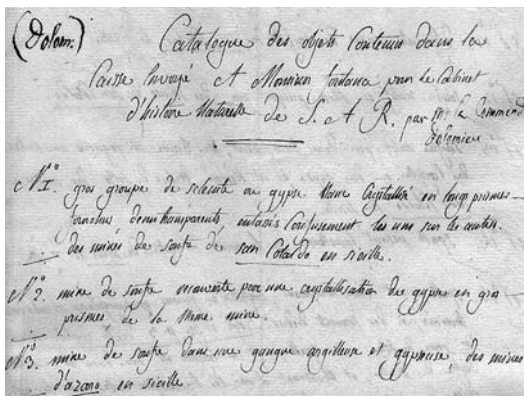 (Dolom.)
Catalogue des objets Contenus dans la
Caisse Envoyé A Monsieur fontana pour le Cabinet
d'histoire Naturelle de S. A R. par Mr le Commend
Dolomieu
N° 1. gros groupe de selenite ou gypse blanc Crystallisé en longs prismes
demitransparents, entassés Confusement les uns sur les autres.
des mines de soufre de san Cataldo en sicille.
N° 2. mine de soufre recouverte par une crystallisation de gypse en gros
prismes de la meme mine.
N° 3. mine de soufre dans une gangue argilleuse et gypseuse, des mines
d'azaro en sicille.